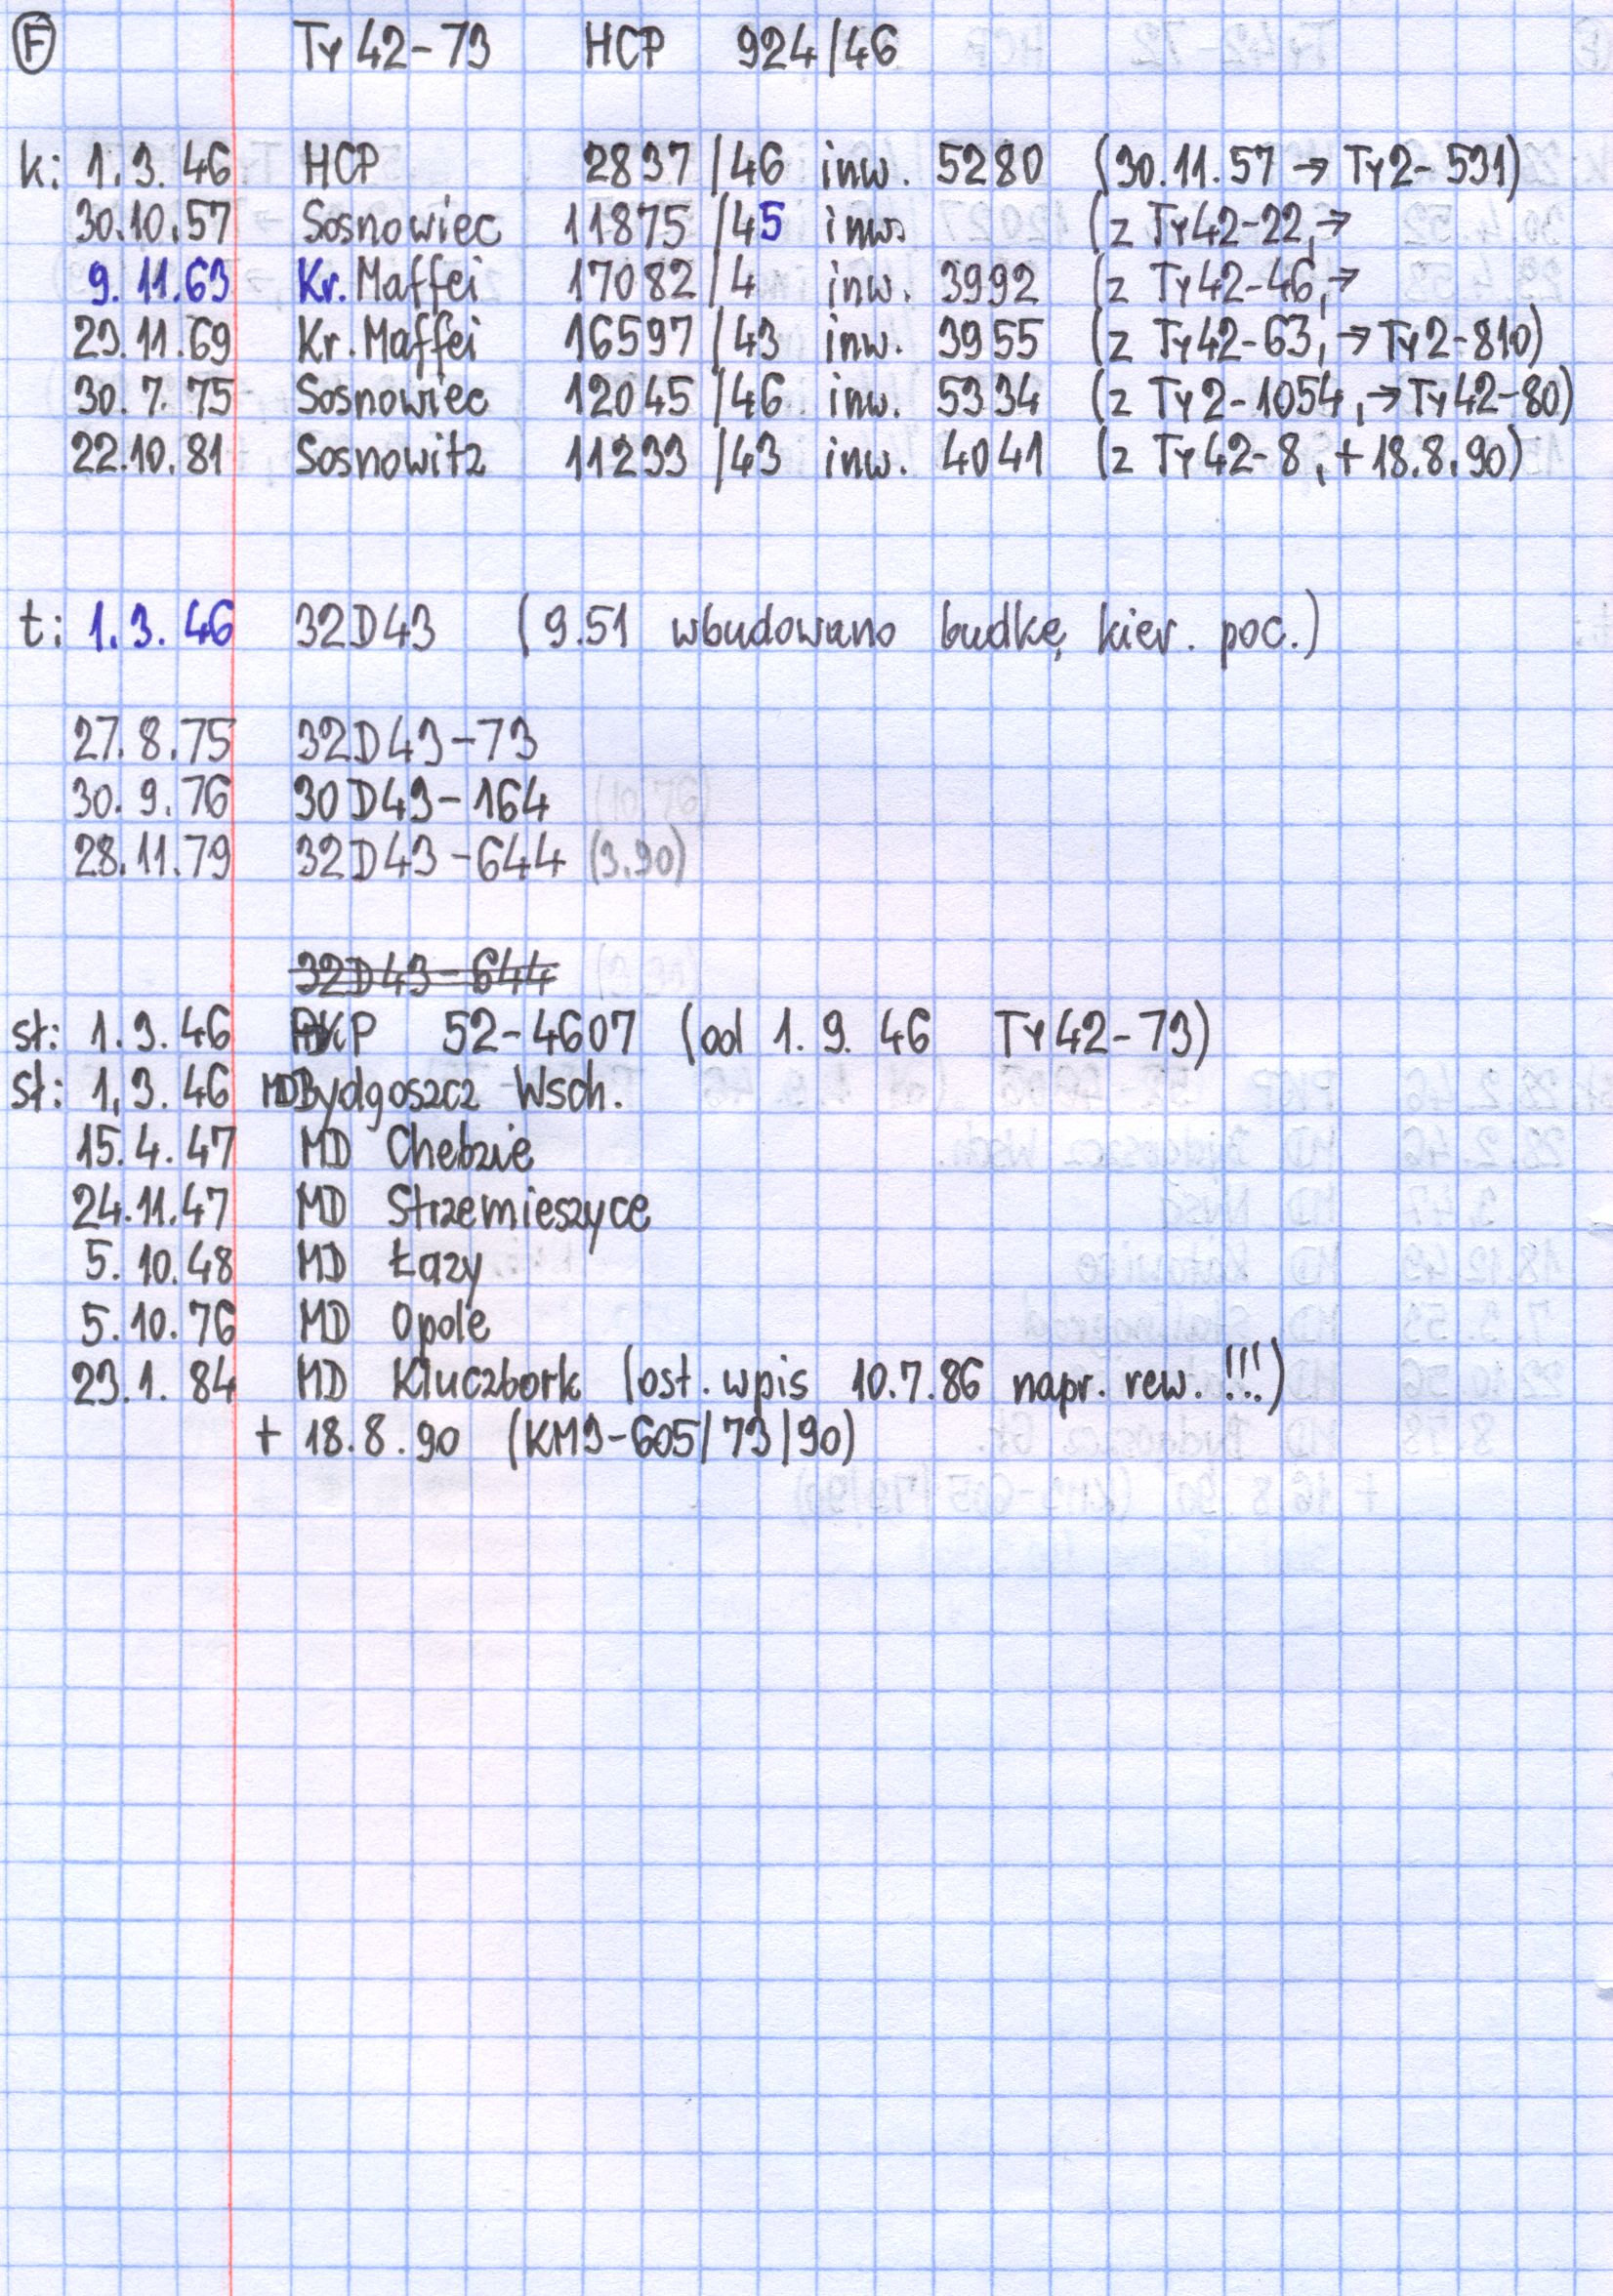 F Ty42-73 HCP 924/46
k: 1.3.46 HCP 2837/46 inw. 5280 (30.11.57 → Ty2-531)
30.10.57 Sosnowiec 11875/45 inw. (z Ty42-22, →
9.11.63 Kr. Maffei 17082/4 inw. 3992 (z Ty42-46, →
29.11.69 Kr. Maffei 16597/43 inw. 3955 (z Ty42-63, → Ty2-810)
30.7.75 Sosnowiec 12045/46 inw. 5334 (z Ty2-1054, → Ty42-80)
22.10.81 Sosnowitz 11233/43 inw. 4041 (z Ty42-8, + 18.8.90)
t: 1.3.46 32D43 (9.51 wbudowano budkę kier. poc.)
27.8.75 32D43-73
30.9.76 30D43-164
28.11.79 32D43-644 (3.90)
32D43-644
st: 1.3.46 PKP 52-4607 (od 1.9.46 Ty42-73)
st: 1.3.46 MD Bydgoszcz Wsch.
15.4.47 MD Chebzie
24.11.47 MD Strzemieszyce
5.10.48 MD Łazy
5.10.76 MD Opole
23.1.84 MD Kluczbork (ost. wpis 10.7.86 napr. rew. !!!)
+ 18.8.90 (KM9-605/73/90)